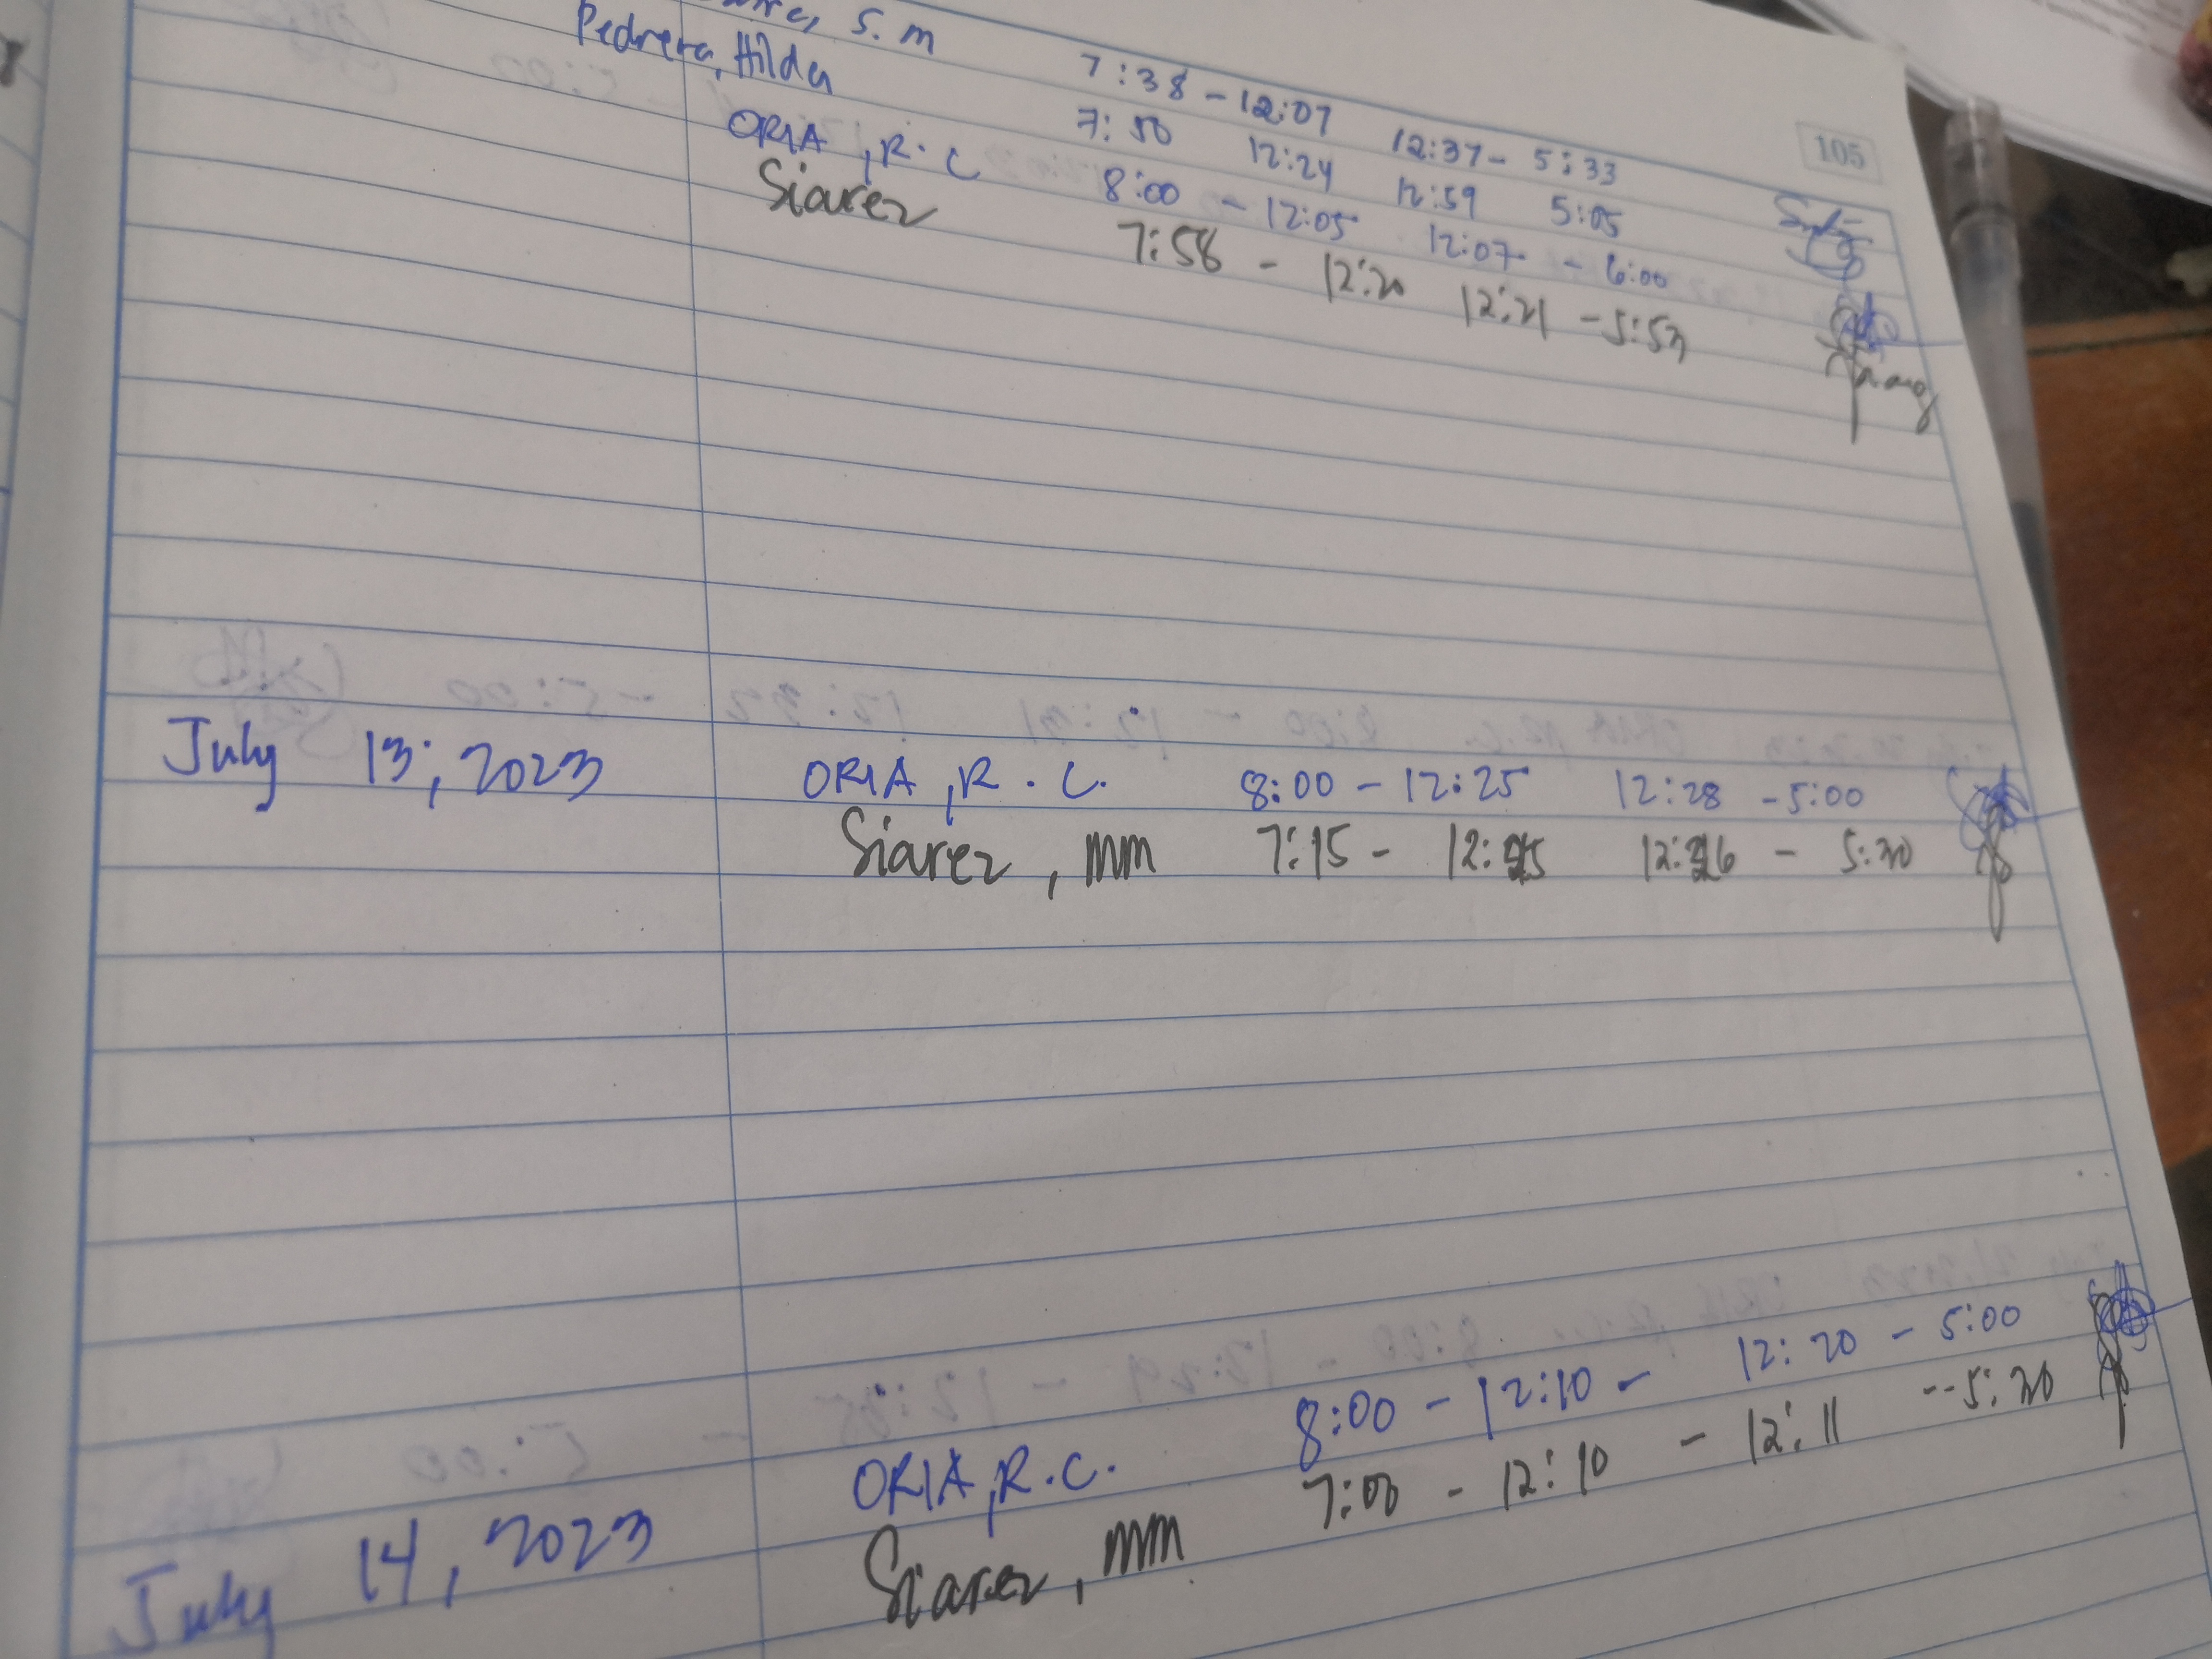 S. m 7:38 - 12:07 12:37 - 5:33
105
Pedrera, Hilda 7:50 12:24 12:59 5:05
ORIA, R. C 8:00 - 12:05 12:07 - 6:00
Siarez 7:58 - 12:20 12:21 - 5:53
July 13, 2023 ORIA, R. C. 8:00 - 12:25 12:28 - 5:00
Siarez, mm 7:15 - 12:25 12:26 - 5:30
July 14, 2023 ORIA, R.C. 8:00 - 12:10 - 12:20 - 5:00
Siarez, mm 7:00 - 12:10 - 12:11 -- 5:30